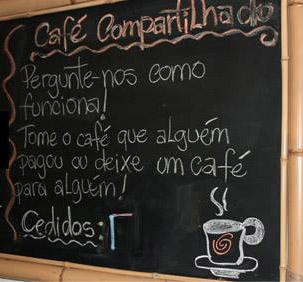 Café Compartilhado
Pergunte-nos como
funciona!
Tome o café que alguém
pagou ou deixe um café
para alguém!
Cedidos: